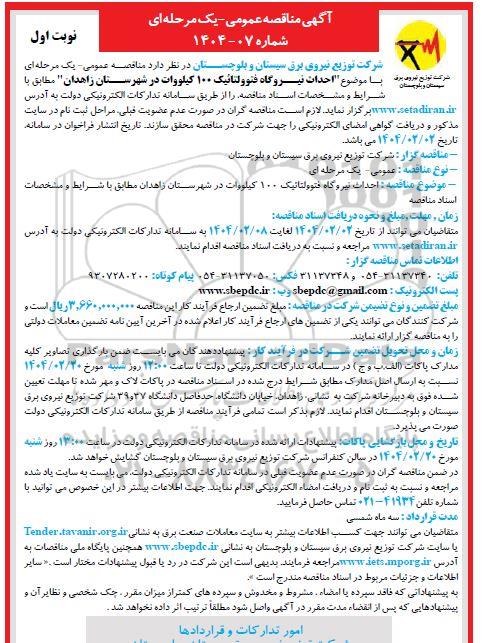 آگهی مناقصه عمومی-یک مرحله‌ای
شماره ۰۷-۱۴۰۴
نوبت اول
شرکت توزیع نیروی برق
سیستان و بلوچستان
شرکت توزیع نیروی برق سیستان و بلوچستــان در نظر دارد مناقصــه عمومی- یک مرحله‌ای
بــا موضوع "احداث نیــروگاه فتوولتائیک ۱۰۰ کیلووات در شهرستــان زاهدان" مطابق با
شرایط و مشخصات اسناد مناقصه، را از طریق سامانه تدارکات الکترونیکی دولت به آدرس
www.setadiran.ir برگزار نماید. لازم است مناقصه گران در صورت عدم عضویت قبلی، مراحل ثبت نام در سایت
مذکور و دریافت گواهی امضای الکترونیکی را جهت شرکت در مناقصه محقق سازند. تاریخ انتشار فراخوان در سامانه،
تاریخ ۱۴۰۴/۰۲/۰۲ می باشد.
– مناقصه گزار : شرکت توزیع نیروی برق سیستان و بلوچستان
– نوع مناقصه : عمومی- یک مرحله ای
– موضوع مناقصه : احداث نیروگاه فتوولتائیک ۱۰۰ کیلووات در شهرستان زاهدان مطابق با شرایط و مشخصات
اسناد مناقصه
زمان , مهلت ,مبلغ و نحوه دریافت اسناد مناقصه:
متقاضیان می توانند از تاریخ ۱۴۰۴/۰۲/۰۲ لغایت ۱۴۰۴/۰۲/۰۸ به سامانه تدارکات الکترونیکی دولت به آدرس
www.setadiran.ir مراجعه و نسبت به دریافت اسناد مناقصه اقدام نمایند.
اطلاعات تماس مناقصه گزار :
تلفن: ۳۱۱۳۷۳۴۰-۰۵۴ و ۳۱۱۳۷۳۴۸ فکس: ۳۱۱۳۷۰۵۰-۰۵۴ پیام کوتاه: ۹۳۰۷۲۸۰۲۰۰
پست الکترونیک : sbepdc@gmail.com وب : www.sbepdc.ir
مبلغ تضمین و نوع تضمین شرکت در مناقصه : مبلغ تضمین ارجاع فرآیند کار این مناقصه ۳,۶۶۰,۰۰۰,۰۰۰ ریال است و
شرکت کنندگان می توانند یکی از تضمین های ارجاع فرآیند کار اعلام شده در آخرین آیین نامه تضمین معاملات دولتی
را به مناقصه گزار ارائه نمایند.
زمان و محل تحویل تضمین شــرکت در فرآیند کار : پیشنهاددهندگان می بایست ضمن بارگذاری تصاویر کلیه
مدارک پاکات (الف،ب و ج) در ســامانه تدارکات الکترونیکی دولت تا ساعت ۱۲:۰۰ روز شنبه مورخ ۱۴۰۴/۰۲/۲۰
نسبت به ارسال اصل مدارک مطابق شرایط درج شده در اســناد مناقصه در پاکات لاک و مهر شده تا مهلت تعیین
شده فوق به دبیرخانه شرکت به نشانی-زاهدان, خیابان دانشگاه, حدفاصل دانشگاه ۳۷و۳۹ شرکت توزیع نیروی برق
سیستان و بلوچستان اقدام نمایند. لازم بذکر است تمامی فرآیند مناقصه از طریق سامانه تدارکات الکترونیکی دولت
صورت می پذیرد.
تاریخ و محل بازگشایی پاکات: پیشنهادات ارائه شده در سامانه تدارکات الکترونیکی دولت در ساعت ۱۳:۰۰ روز شنبه
مورخ ۱۴۰۴/۰۲/۲۰ در سالن کنفرانس شرکت توزیع نیروی برق سیستان و بلوچستان گشایش خواهد شد.
در ضمن مناقصه گران در صورت عدم عضویت قبلی در سامانه تدارکات الکترونیکی دولت، می بایست به سایت یاد شده
مراجعه و نسبت به ثبت نام و دریافت امضاء الکترونیکی اقدام نمایند. جهت اطلاعات بیشتر در این خصوص می توانید با
شماره تلفن ۴۱۹۳۴-۰۲۱ تماس حاصل فرمایید.
مدت قرارداد : سه ماه شمسی
متقاضیان می توانند جهت کســب اطلاعات بیشتر به سایت معاملات صنعت برق به نشانی Tender.tavanir.org.ir
یا سایت شرکت توزیع نیروی برق سیستان و بلوچستان به نشانی www.sbepdc.ir همچنین پایگاه ملی مناقصات به
آدرس www.iets.mporg.ir مراجعه فرمایند. بدیهی است این شرکت در رد یا قبول پیشنهادات مختار است .« سایر
اطلاعات و جزئیات مربوط در اسناد مناقصه مندرج است ».
به پیشنهاداتی که فاقد سپرده یا امضاء ، مشروط و مخدوش و سپرده های کمتراز میزان مقرر ، چک شخصی و نظایر آن و
پیشنهادهایی که پس از انقضاء مدت مقرر در آگهی واصل شود مطلقاً ترتیب اثر داده نخواهد شد .
امور تدارکات و قراردادها